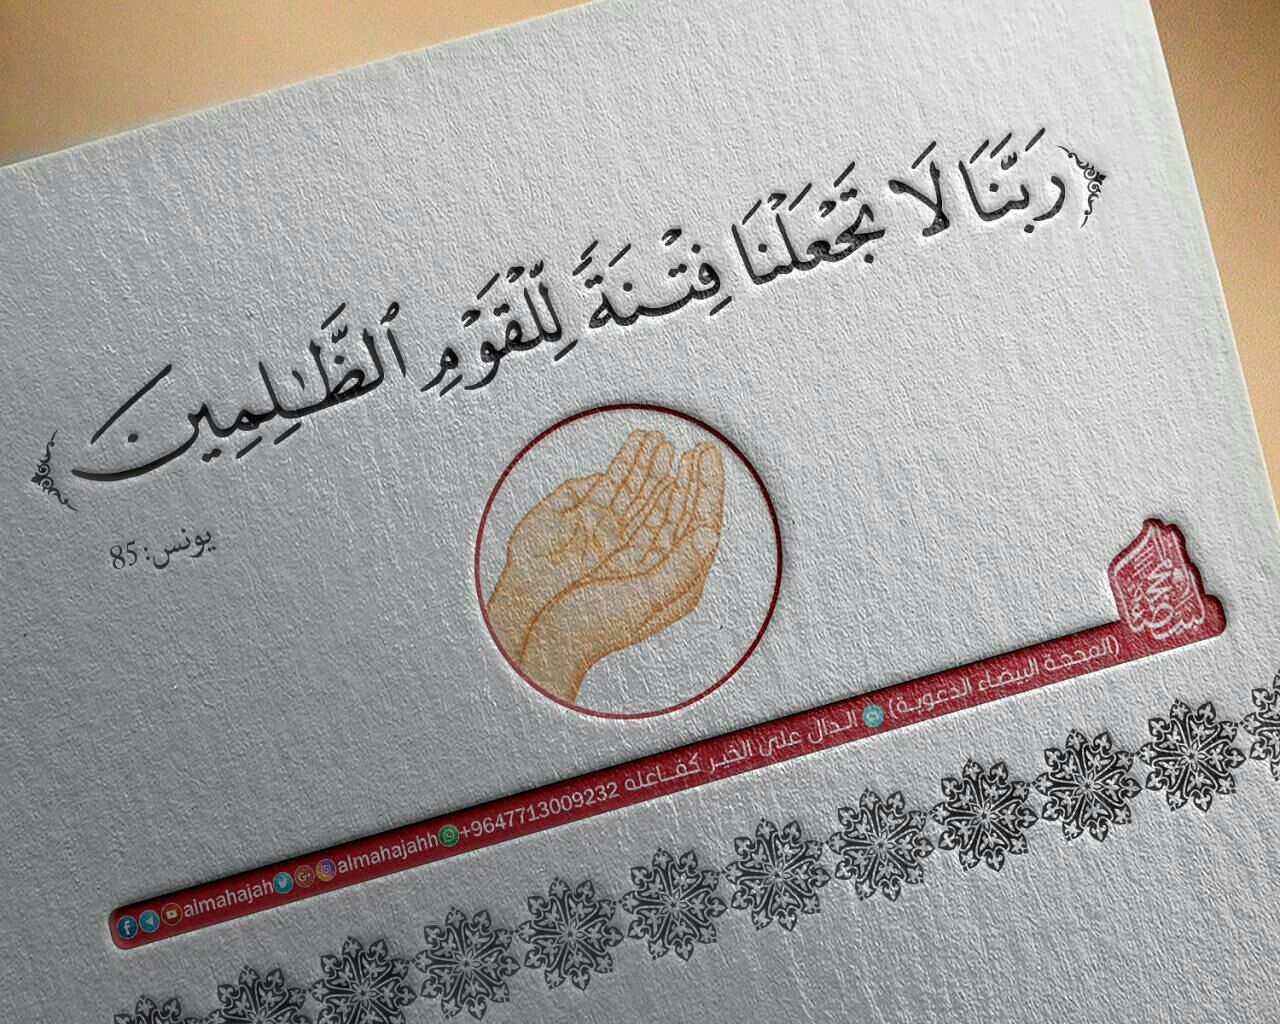 ﴿رَبَّنَا لَا تَجْعَلْنَا فِتْنَةً لِّلْقَوْمِ ٱلظَّٰلِمِينَ﴾
يونس: 85
المحجة البيضاء
(المحجة البيضاء الدعوية) الدال على الخير كفاعله +9647713009232 almahajahh almahajah